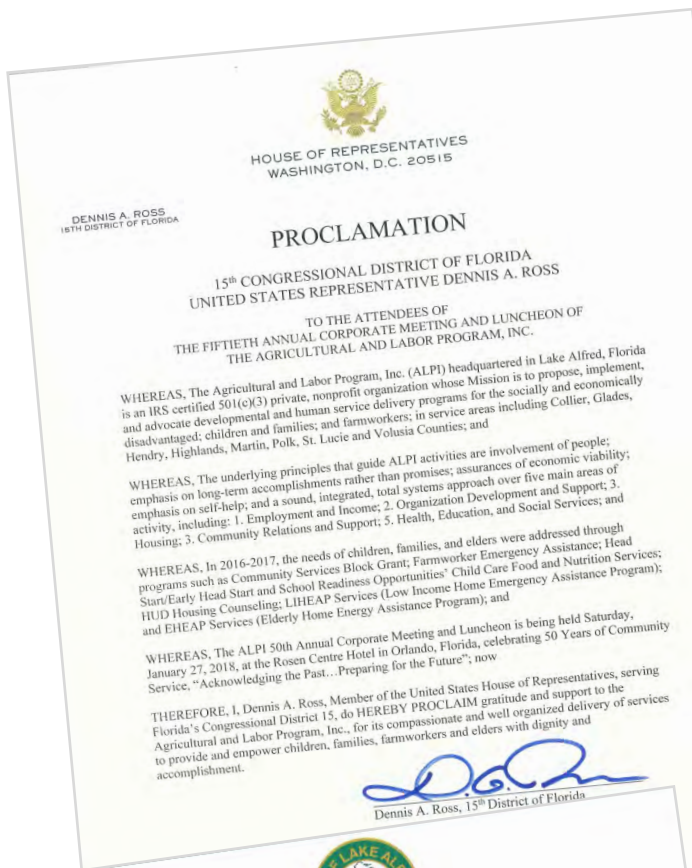 HOUSE OF REPRESENTATIVES
WASHINGTON, D.C. 20515
DENNIS A. ROSS
15TH DISTRICT OF FLORIDA
PROCLAMATION
15th CONGRESSIONAL DISTRICT OF FLORIDA
UNITED STATES REPRESENTATIVE DENNIS A. ROSS
TO THE ATTENDEES OF
THE FIFTIETH ANNUAL CORPORATE MEETING AND LUNCHEON OF
THE AGRICULTURAL AND LABOR PROGRAM, INC.
WHEREAS, The Agricultural and Labor Program, Inc. (ALPI) headquartered in Lake Alfred, Florida
is an IRS certified 501(c)(3) private, nonprofit organization whose Mission is to propose, implement,
and advocate developmental and human service delivery programs for the socially and economically
disadvantaged; children and families; and farmworkers; in service areas including Collier, Glades,
Hendry, Highlands, Martin, Polk, St. Lucie and Volusia Counties; and
WHEREAS, The underlying principles that guide ALPI activities are involvement of people;
emphasis on long-term accomplishments rather than promises; assurances of economic viability;
emphasis on self-help; and a sound, integrated, total systems approach over five main areas of
activity, including: 1. Employment and Income; 2. Organization Development and Support; 3.
Housing; 3. Community Relations and Support; 5. Health, Education, and Social Services; and
WHEREAS, In 2016-2017, the needs of children, families, and elders were addressed through
programs such as Community Services Block Grant; Farmworker Emergency Assistance; Head
Start/Early Head Start and School Readiness Opportunities' Child Care Food and Nutrition Services;
HUD Housing Counseling; LIHEAP Services (Low Income Home Emergency Assistance Program);
and EHEAP Services (Elderly Home Energy Assistance Program); and
WHEREAS, The ALPI 50th Annual Corporate Meeting and Luncheon is being held Saturday,
January 27, 2018, at the Rosen Centre Hotel in Orlando, Florida, celebrating 50 Years of Community
Service, "Acknowledging the Past…Preparing for the Future"; now
THEREFORE, I, Dennis A. Ross, Member of the United States House of Representatives, serving
Florida's Congressional District 15, do HEREBY PROCLAIM gratitude and support to the
Agricultural and Labor Program, Inc., for its compassionate and well organized delivery of services
to provide and empower children, families, farmworkers and elders with dignity and
accomplishment.
Dennis A. Ross, 15th District of Florida
LAKE